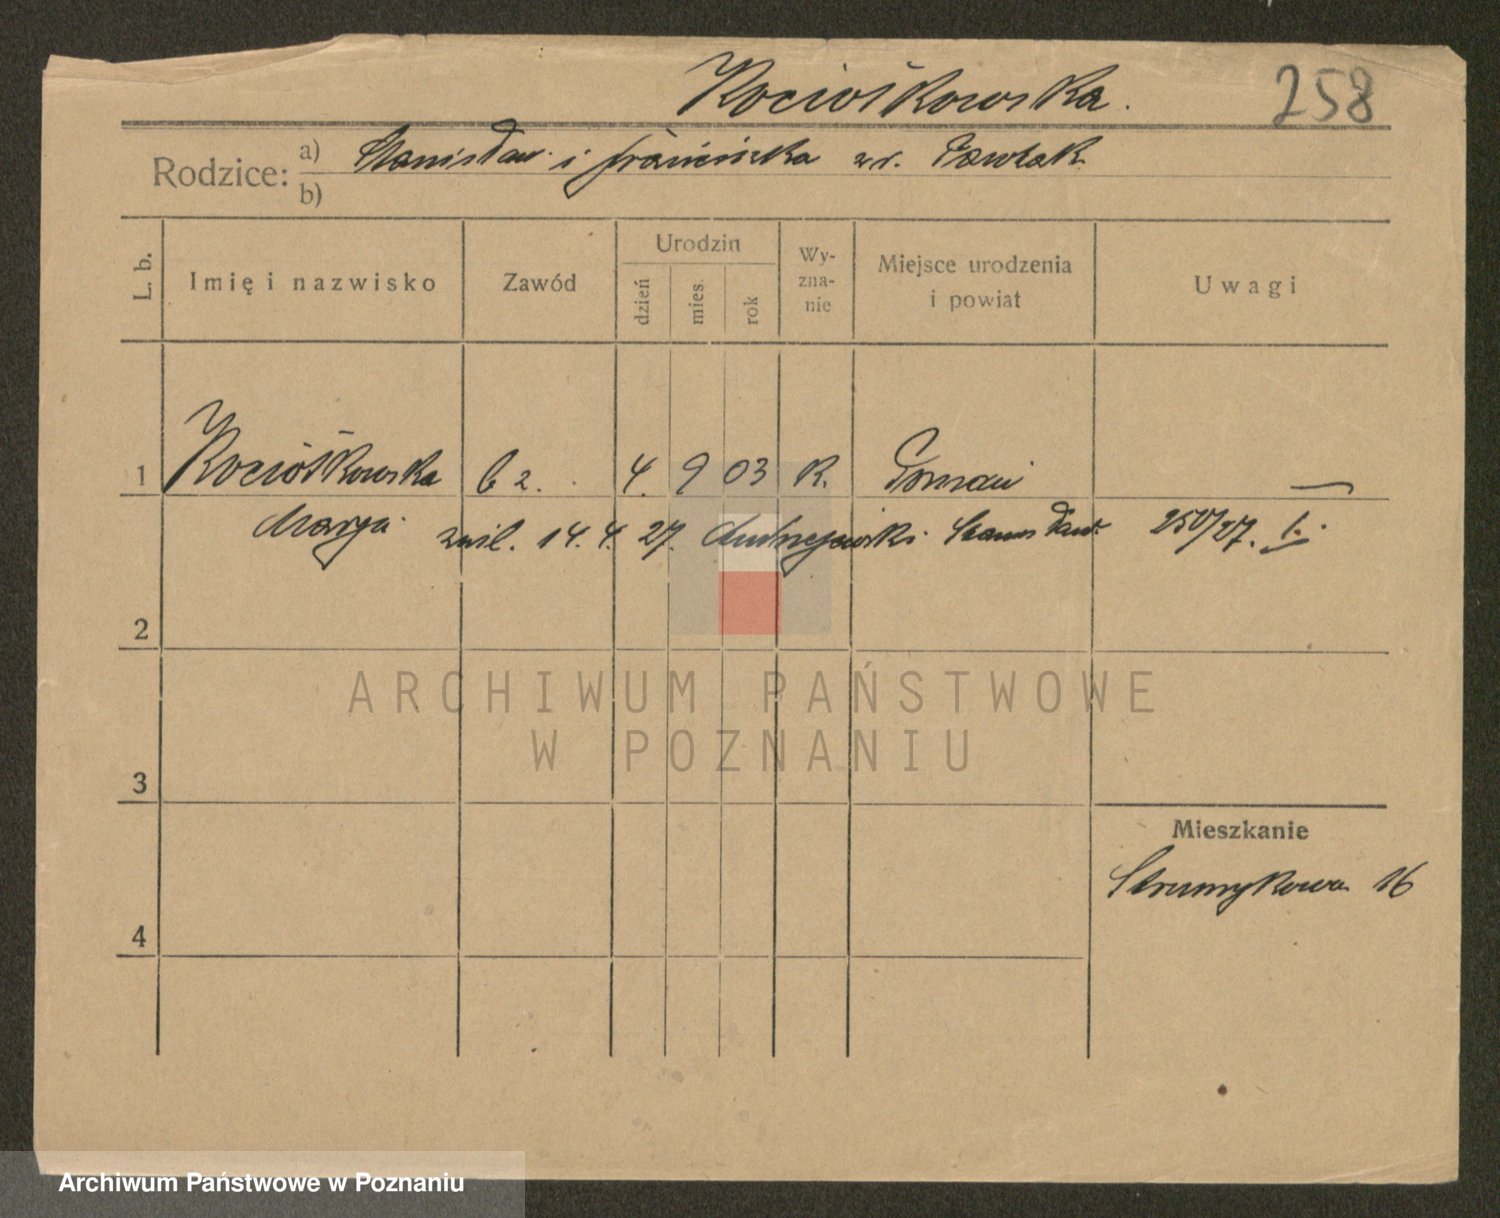 Kociołkowska. 258
Rodzice: a) Stanisław i Franciszka ur. Pawlak
b)
L. b. Imię i nazwisko Zawód Urodzin dzień mies. rok Wy-zna-nie Miejsce urodzenia i powiat Uwagi
1 Kociołkowska b z. 4. 9 03 R. Poznań —
Marya zaśl. 14. 4. 27. Andrzejewski Stanisław 250/27. I.
2
ARCHIWUM PAŃSTWOWE
W POZNANIU
3
Mieszkanie
Strumykowa 16
4
Archiwum Państwowe w Poznaniu